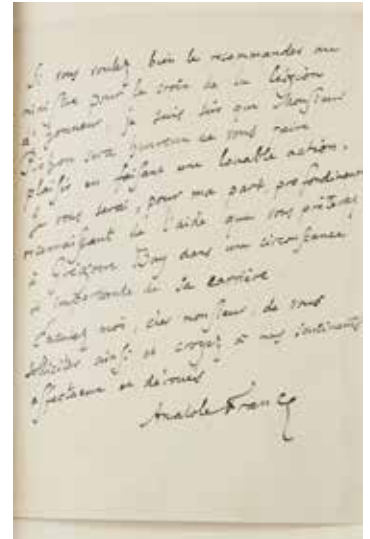 Si vous voulez bien le recommander au
ministre pour la croix de la Légion
d'honneur je suis sûr que Monsieur
sera heureux de vous faire
plaisir en faisant une louable action.
Je vous serai, pour ma part profondément
reconnaissant de l'aide que vous prêterez
à dans une circonstance
si importante de sa carrière
Excusez moi, cher monsieur, de vous
solliciter ainsi et croyez à mes sentiments
affectueux et dévoués
Anatole France